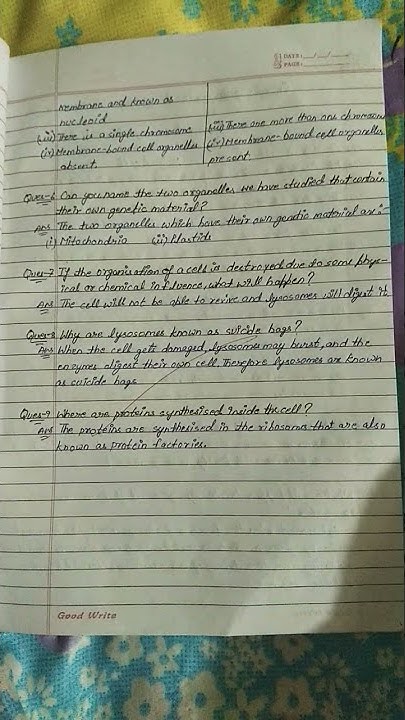 DATE: __/__/____
PAGE: ________
membrane and known as
nucleoid
(iii) There is a single chromosome (iii) There are more than one chromosome
(iv) Membrane-bound cell organelles (iv) Membrane-bound cell organelles
absent. present.
Ques-6 Can you name the two organelles we have studied that contain
their own genetic material?
Ans The two organelles which have their own genetic material are:-
(i) Mitochondria (ii) Plastids
Ques-7 If the organisation of a cell is destroyed due to some phys-
ical or chemical influence, what will happen?
Ans The cell will not be able to revive and lysosomes will digest it
Ques-8 Why are lysosomes known as suicide bags?
Ans When the cell gets damaged, lysosomes may burst, and the
enzymes digest their own cell. Therefore lysosomes are known
as suicide bags
Ques-9 Where are proteins synthesised inside the cell?
Ans The proteins are synthesised in the ribosomes that are also
known as protein factories.
Good Write